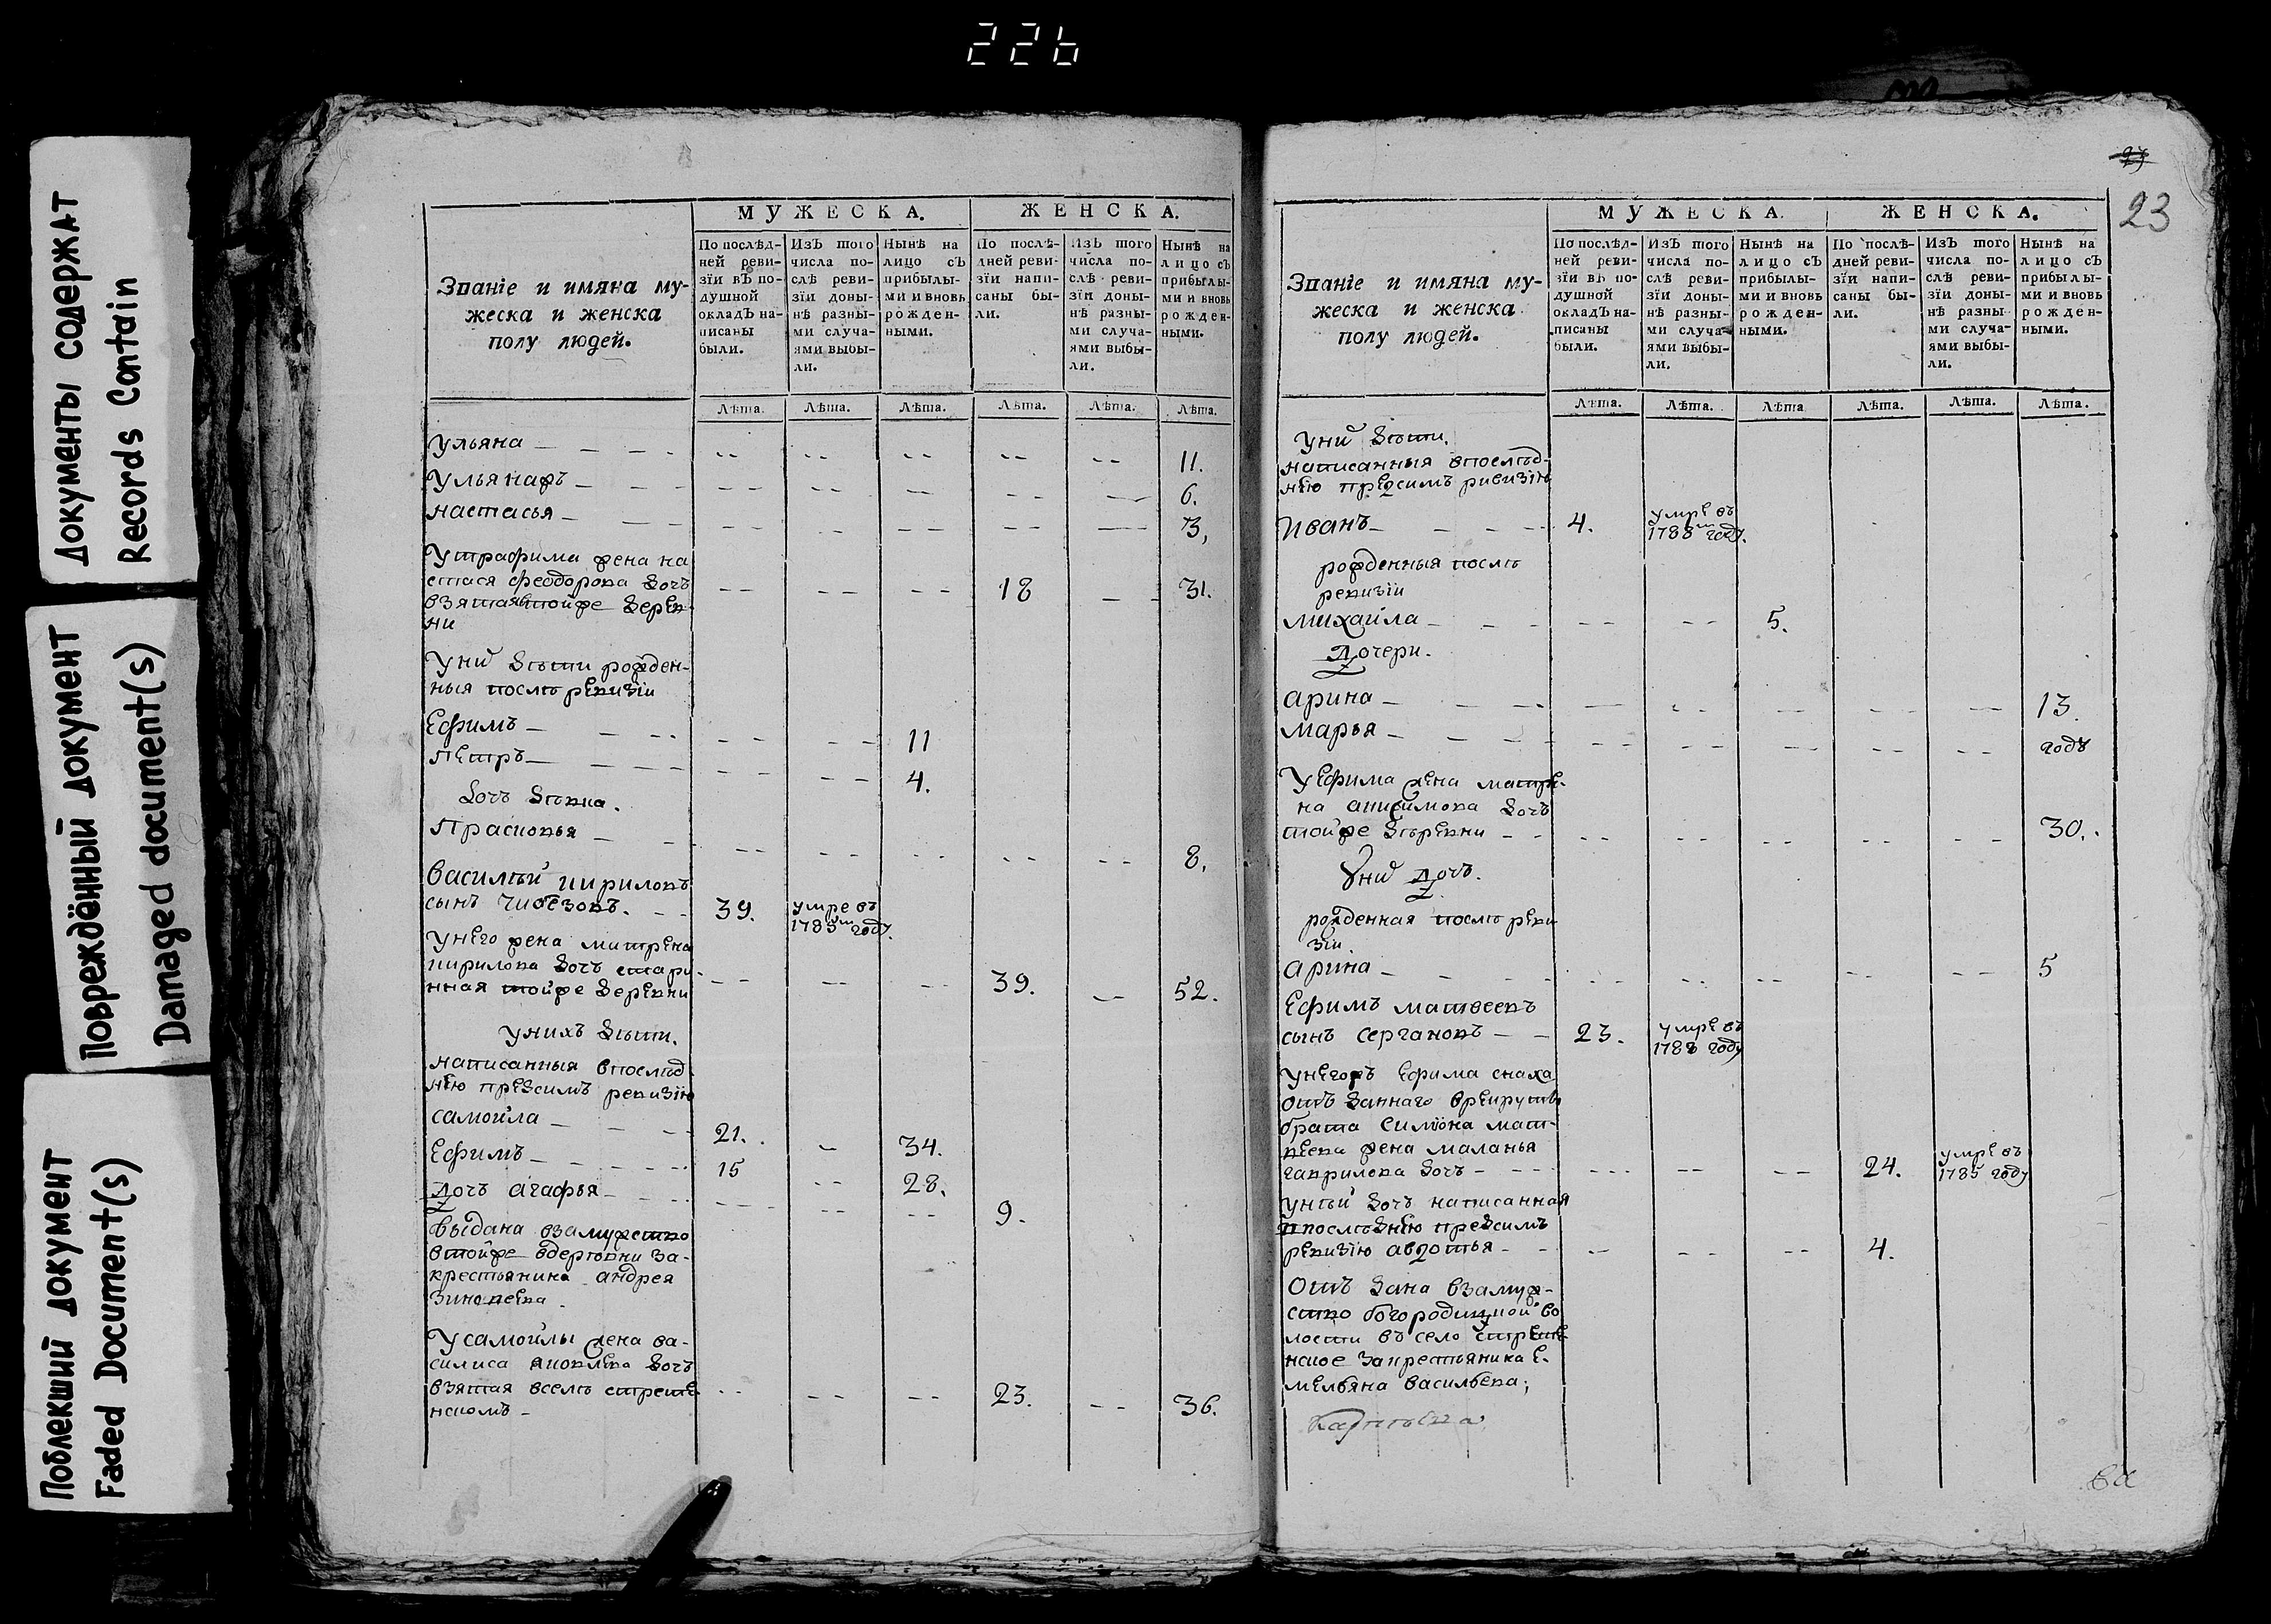 226
Документы содержат
Records Contain
Повреждённый документ
Damaged document(s)
Поблекший документ
Faded Document(s)
МУЖЕСКА. ЖЕНСКА.
Званіе и имяна му-
жеска и женска
полу людей.
По послѣд-
ней реви-
зіи вЪ по-
душной
окладЪ на-
писаны
были.
ИзЪ того
числа по-
слѣ реви-
зіи доны-
нѣ разны-
ми случа-
ями выбы-
ли.
Нынѣ на
лицо сЪ
прибылы-
ми и вновь
рожден-
ными.
По послѣ-
дней реви-
зіи напи-
саны бы-
ли.
ИзЪ того
числа по-
слѣ реви-
зіи доны-
нѣ разны-
ми случа-
ями выбы-
ли.
Нынѣ на
лицо сЪ
прибылы-
ми и вновь
рожден-
ными.
Лѣта. Лѣта. Лѣта. Лѣта. Лѣта. Лѣта.
ульяна 11.
Ульянажъ 6.
настасья 3,
Утрафима жена на
стася феодорова дочь
взятая втойже дерев- 18 31.
ни
Уних дѣти рожден-
ныя послѣ ревизіи
Ефимъ 11
Петръ 4.
дочь девка.
Прасковья 8,
Василѣй кириловъ
сынъ 39. умре въ
1785м году.
Унего жена матрена
кирилова дочь стари-
нная тойже деревни 39. 52.
унихъ дѣти.
написанныя впослѣд-
нею предсимъ ревизію
самойла 21. 34.
Ефимъ 15 28.
Дочь агафья 9.
выдана взамужство
втойже вдеревни за-
крестьянина андрея
зиновьева.
У самойлы жена ва-
силиса яковлева дочь
взятая вселѣ стрете- 23. 36.
нскомъ
23
МУЖЕСКА. ЖЕНСКА.
Званіе и имяна му-
жеска и женска
полу людей.
По послѣд-
ней реви-
зіи вЪ по-
душной
окладЪ на-
писаны
были.
ИзЪ того
числа по-
слѣ реви-
зіи доны-
нѣ разны-
ми случа-
ями выбы-
ли.
Нынѣ на
лицо сЪ
прибылы-
ми и вновь
рожден-
ными.
По послѣ-
дней реви-
зіи напи-
саны бы-
ли.
ИзЪ того
числа по-
слѣ реви-
зіи доны-
нѣ разны-
ми случа-
ями выбы-
ли.
Нынѣ на
лицо сЪ
прибылы-
ми и вновь
рожден-
ными.
Лѣта. Лѣта. Лѣта Лѣта. Лѣта. Лѣта.
Уних дѣти.
написанныя впослѣд-
нею предсимъ ривизію
Иванъ 4. умре въ
1788м году.
рожденныя послѣ
ревизіи
михайла 5.
Дочери.
арина 13.
марья годъ
У ефима жена матре-
на анисимова дочь
тойже дѣревни 30.
Уних Дочь.
рожденная послѣ реви
зіи.
арина 5
Ефимъ матвеевъ
сынъ сергановъ 23. умре въ
1788 году
унегожъ ефима снаха
отъ даннаго врекруты
брата симиона мат-
веева жена маланья
гаврилова дочь 24. умре въ
1785 году
унѣй дочь написанная
впослѣднею предсимъ
ревизію авдотья 4.
Отъ дана взамуж-
ство богородицкой во
лости въ село стрете-
нское закрестьянина е-
мельяна васильева;